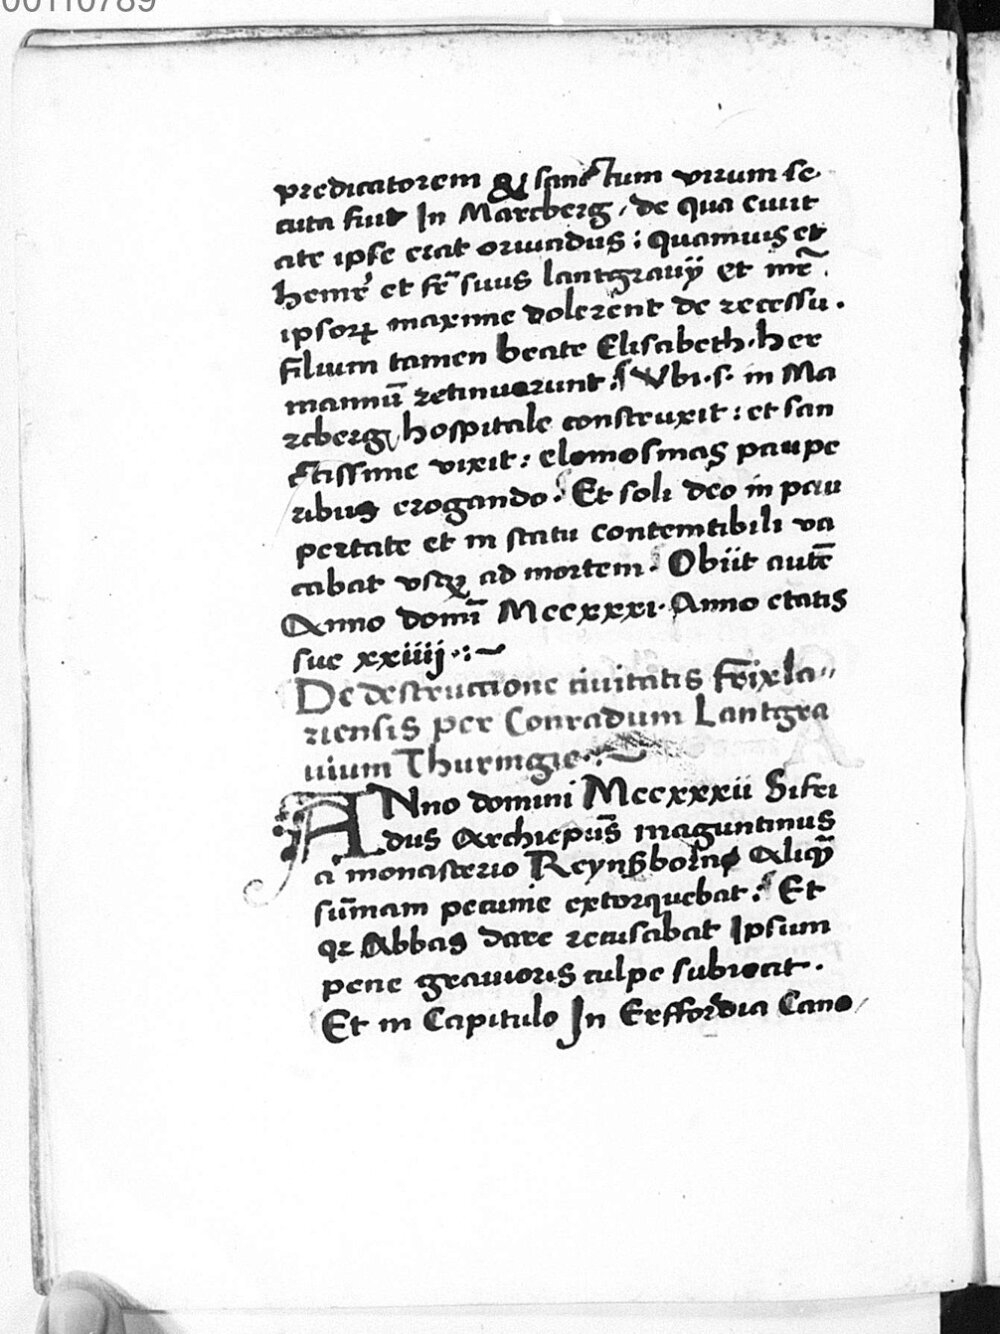 00110789
predicatorem & sanctum virum se
cuta fuit In Marcberg, de qua civit
ate ipse erat oriundus: quamuis et
hemr̃ et fr̃ suus lantgrauij et mr̃.
ipsoꝝ maxime dolerent de recessu.
filium tamen beate Elisabeth. her
mannũ retinuerunt. Vbi .s. in Ma
rcberg hospitale construxit: et san
ctissime vixit: elemosinas paupe
ribus erogando. Et soli deo in pau
pertate et in statu contemtibili va
cabat vsqꝫ ad mortem. Obiit autẽ
Anno domĩ Mccxxxi. Anno etatis
sue xxiiij.:~
De destructione ciuitatis Frixla-
riensis per Conradum Lantgra
uium Thuringie.:~
ANno domini Mccxxxii Sifri
dus Archiepũs maguntinus
a monasterio Reynsborns Aliqũ
sũmam pecunie extorquebat. Et
qꝛ Abbas dare recusabat Ipsum
pene grauioris culpe subiecit.
Et in Capitulo In Erffordia Cano/